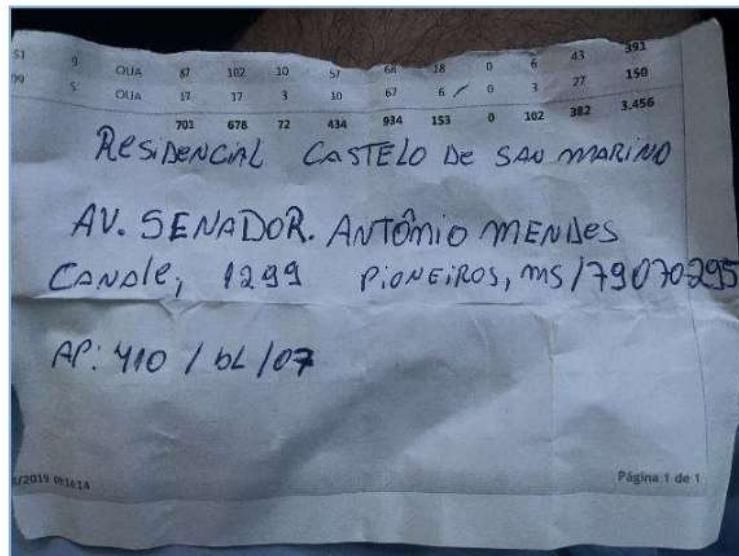 51 9 QUA 87 102 10 57 68 18 0 6 43 391
09 5 QUA 17 17 3 10 67 6 0 3 27 150
701 678 72 434 934 153 0 102 382 3.456
Residencial Castelo de San Marino
AV. SENADOR. ANTÔNIO MENDES
CANALE, 1299 PIONEIROS, MS/79070295
AP: 410 / bL /07
/2019 09:16:14 Página 1 de 1